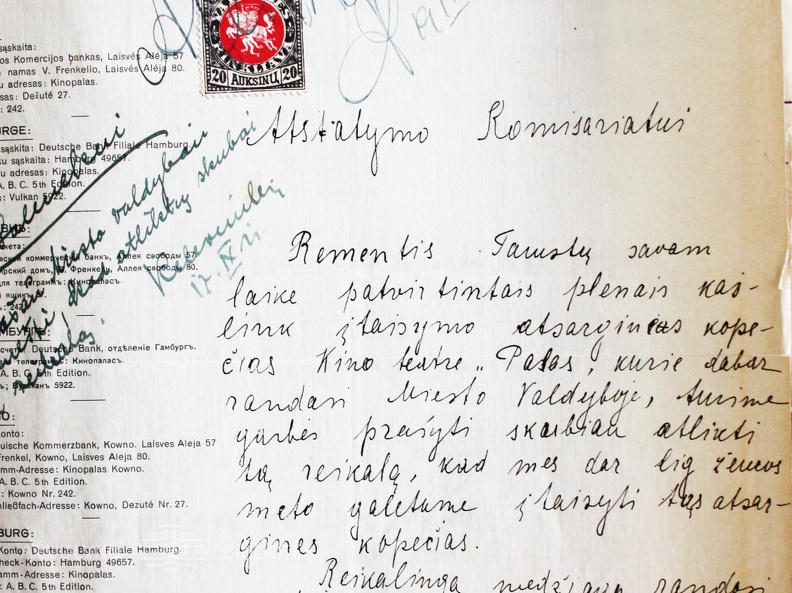 20 AUKSINŲ 20
sąskaita:
os Komercijos bankas, Laisvės Alėja 57
namas V. Frenkelio, Laisvės Alėja 80.
u adresas: Kinopalas.
sas: Dežutė 27.
242.
URGE:
sąskaita: Deutsche Bank Filiale Hamburg.
ku sąskaita: Hamburg 49657.
u adresas: Kinopalas.
A. B. C. 5th Edition.
: Vulkan 5922.
счета:
коммерческ банкъ, Аллея свободы 57
рскій домъ В. Френкель, Аллея свободы 80.
для телеграммъ: Кинопаласъ.
МБУРГЪ:
счетъ: Deutsche Bank, отдѣленіе Гамбургъ.
телеграммъ: Кинопаласъ.
A. B. C. 5th Edition.
Вулканъ 5922.
O:
onto:
uische Kommerzbank, Kowno. Laisves Aleja 57
Frenkel, Kowno, Laisves Aleja 80.
mm-Adresse: Kinopalas Kowno.
A. B. C. 5th Edition.
: Kowno Nr. 242.
hließfach-Adresse: Kowno, Dezuté Nr. 27.
BURG:
Konto: Deutsche Bank Filiale Hamburg.
check-Konto: Hamburg 49657.
amm-Adresse: Kinopalas.
: A. B. C. 5th Edition.
Miesto valdybai
atliktų skubiai
reikalą.
17. IX 21
Atstatymo Komisariatui
Rementis Tamstų savam
laike patvirtintais plenais kas-
link įtaisymo atsargines kope-
čias Kino teatre „Palas, kurie dabar
randasi Miesto Valdyboje, turime
garbės prašyti skubiau atlikti
tą reikalą, kad mes dar lig žiemos
meto galėtume įtaisyti tas atsar-
gines kopečias.
Reikalinga medžiaga randasi